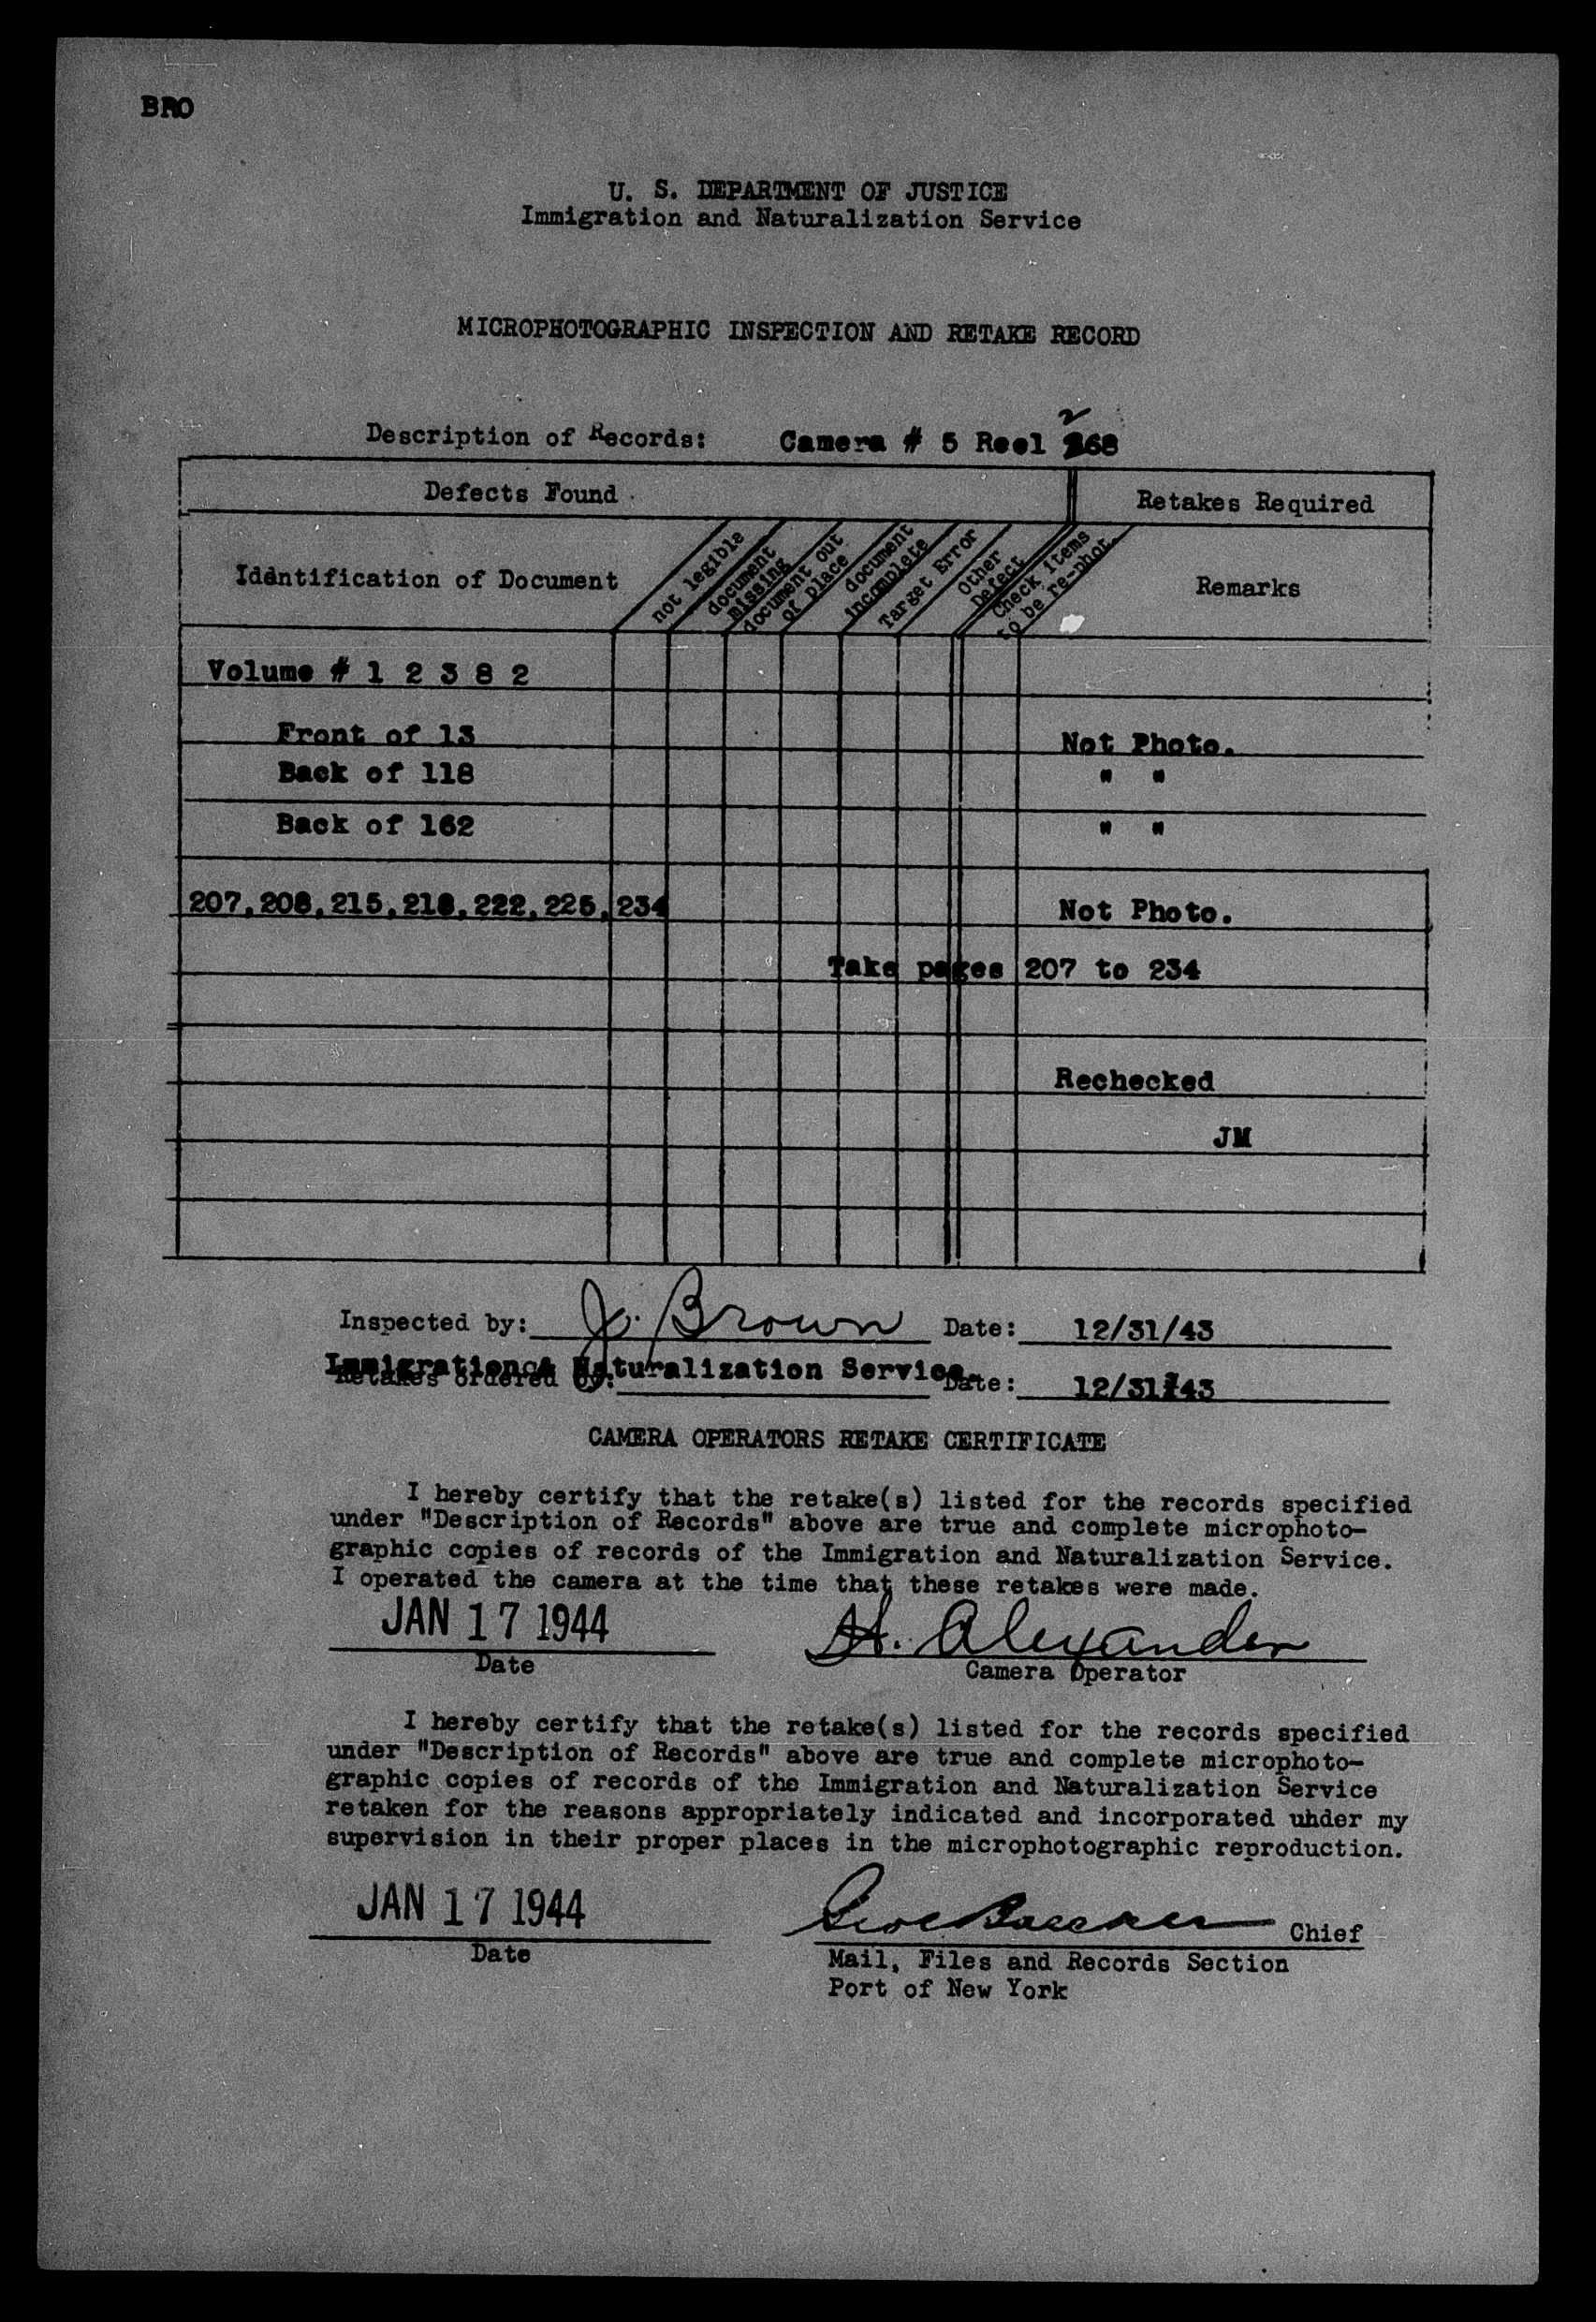 BRO
U. S. DEPARTMENT OF JUSTICE
Immigration and Naturalization Service
MICROPHOTOGRAPHIC INSPECTION AND RETAKE RECORD
2
Description of Records: Camera # 5 Reel 268
Defects Found Retakes Required
Iddntification of Document
not legible
document missing
document out of place
document incomplete
Target Error
Other Defect
Check items to be re-phot.
Remarks
Volume # 1 2 3 8 2
Front of 13 Not Photo.
Back of 118 " "
Back of 162 " "
207,208,215,218,222,225,234 Not Photo.
Take pages 207 to 234
Rechecked
JM
Inspected by: J. Brown Date: 12/31/43
Immigration & Naturalization Service.
Retakes ordered by: Date: 12/31/43
CAMERA OPERATORS RETAKE CERTIFICATE
I hereby certify that the retake(s) listed for the records specified
under "Description of Records" above are true and complete microphoto-
graphic copies of records of the Immigration and Naturalization Service.
I operated the camera at the time that these retakes were made.
JAN 17 1944 H. Alexander
Date Camera Operator
I hereby certify that the retake(s) listed for the records specified
under "Description of Records" above are true and complete microphoto-
graphic copies of records of the Immigration and Naturalization Service
retaken for the reasons appropriately indicated and incorporated under my
supervision in their proper places in the microphotographic reproduction.
JAN 17 1944 Chief
Date Mail, Files and Records Section
Port of New York